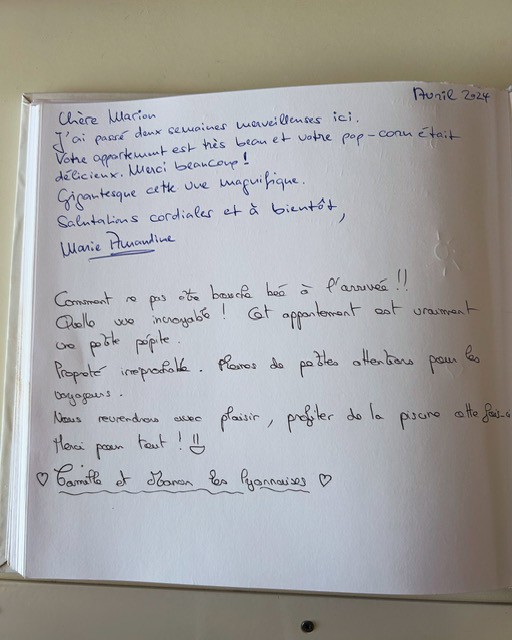 Avril 2024
Chère Marion
J'ai passé deux semaines merveilleuses ici.
Votre appartement est très beau et votre pop-corn était
délicieux. Merci beaucoup!
Gigantesque cette vue magnifique.
Salutations cordiales et à bientôt,
Marie Amandine
Comment ne pas être bouche bée à l'arrivée !!
Quelle vue incroyable ! Cet appartement est vraiment
une petite pépite.
Propreté irréprochable. Pleines de petites attentions pour les
voyageurs.
Nous reviendrons avec plaisir, profiter de la piscine cette fois-ci
Merci pour tout !
Camille et Manon les Lyonnaises